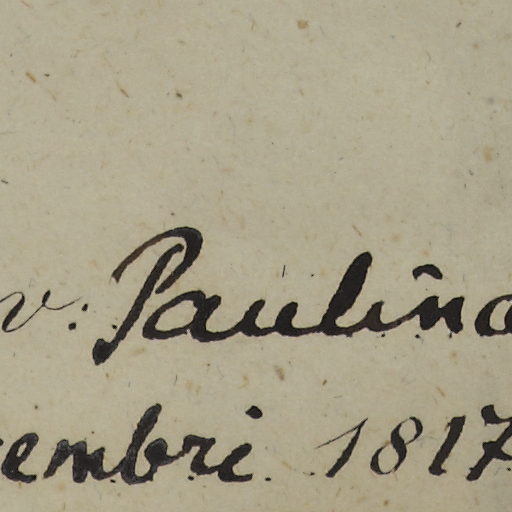 v: Paulina
embri 1817